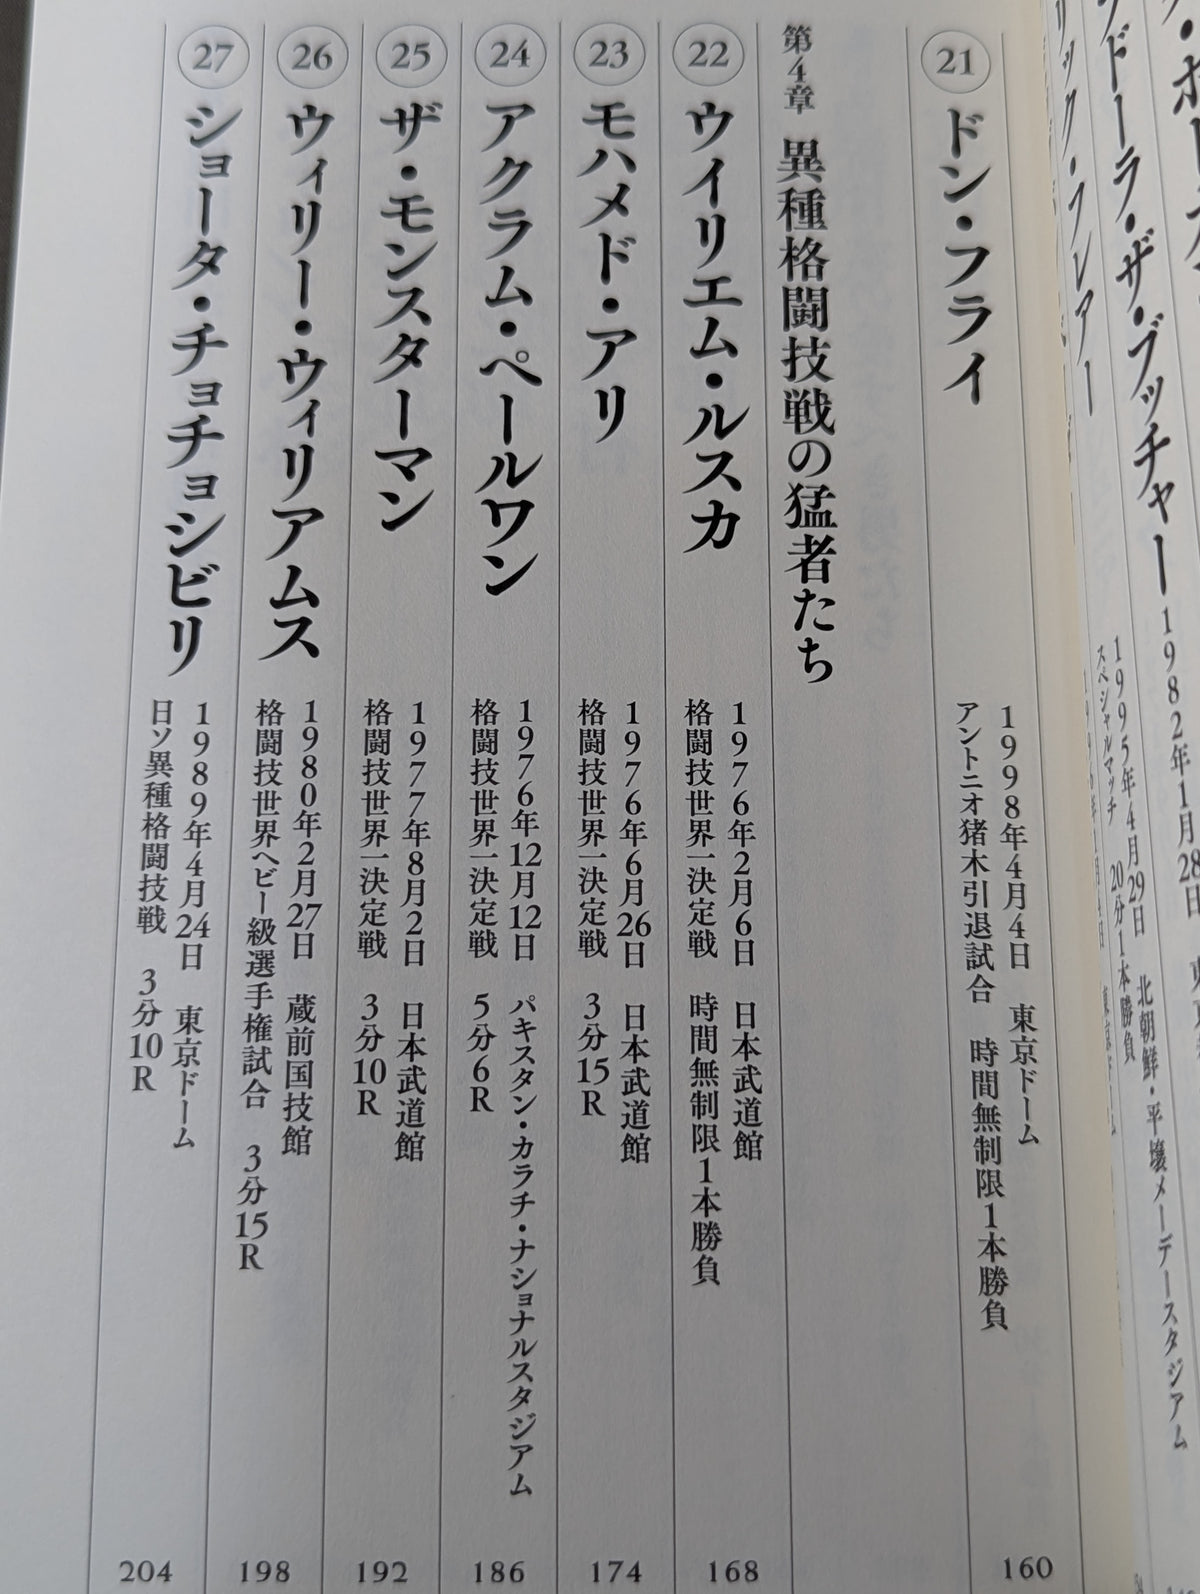 ドーラ・ザ・ブッチャー
1982年1月28日
リック・フレアー
1995年4月29日 北朝鮮・平壌メーデースタジアム
スペシャルマッチ 20分1本勝負
21
ドン・フライ
1998年4月4日 東京ドーム
アントニオ猪木引退試合 時間無制限1本勝負
160
第4章 異種格闘技戦の猛者たち
22
ウイリエム・ルスカ
1976年2月6日 日本武道館
格闘技世界一決定戦 時間無制限1本勝負
168
23
モハメド・アリ
1976年6月26日 日本武道館
格闘技世界一決定戦 3分15R
174
24
アクラム・ペールワン
1976年12月12日 パキスタン・カラチ・ナショナルスタジアム
格闘技世界一決定戦 5分6R
186
25
ザ・モンスターマン
1977年8月2日 日本武道館
格闘技世界一決定戦 3分10R
192
26
ウィリー・ウィリアムス
1980年2月27日 蔵前国技館
格闘技世界ヘビー級選手権試合 3分15R
198
27
ショータ・チョチョシビリ
1989年4月24日 東京ドーム
日ソ異種格闘技戦 3分10R
204